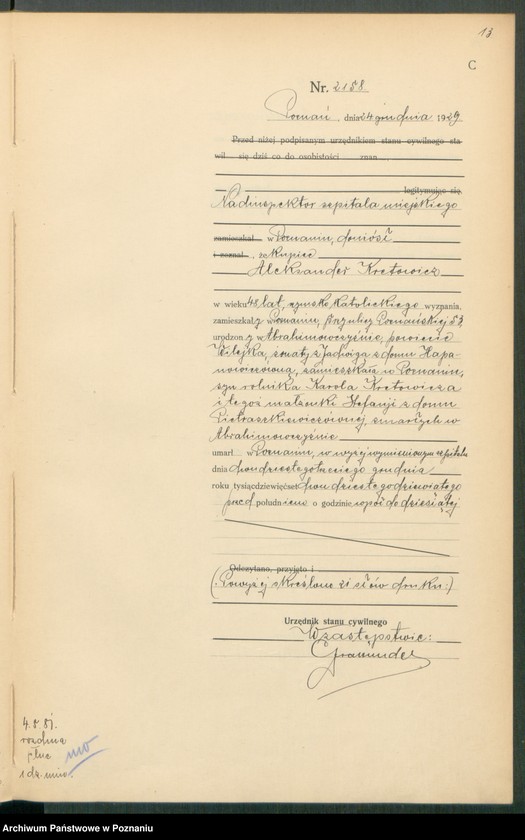 13
C
Nr. 2158.
Poznań, dnia 24 grudnia 1929
Przed niżej podpisanym urzędnikiem stanu cywilnego sta
wił się dziś co do osobistości znan
legitymując się
Nadinspektor szpitala miejskiego
zamieszkał w Poznaniu, doniósł
i zeznał, że kupiec
Aleksander Kretowicz
w wieku 48 lat, rzymsko katolickiego wyznania,
zamieszkały w Poznaniu, przy ulicy Poznańskiej 53,
urodzony w Abrahimowszczyźnie, powiecie
Wilejka, żonaty z Jadwigą z domu Hapa-
nowiczówną, zamieszkałą w Poznaniu,
syn rolnika Karola Kretowicza
i tegoż małżonki Stefanji z domu
Pietraszkiewiczównej, zmarłych w
Abrahimowszczyźnie
umarł w Poznaniu, w wyżej wymienionym szpitalu
dnia dwudziestego trzeciego grudnia
roku tysiąc dziewięćset dwudziestego dziewiątego
przed południem o godzinie wpół do dziesiątej
Odczytano, przyjęto i
(Powyżej skreślono 21 słów druku:)
Urzędnik stanu cywilnego
W zastępstwie:
4.8 81.
płuc
Archiwum Państwowe w Poznaniu